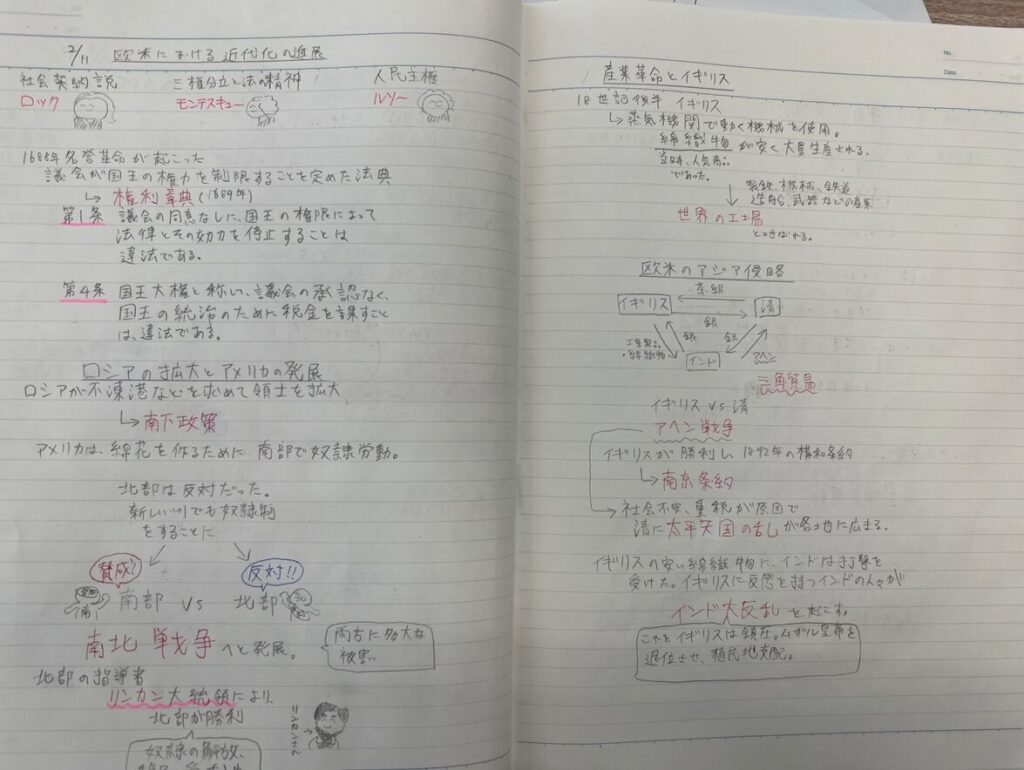 2/11 欧米における近代化の進展
社会契約説 三権分立と法の精神 人民主権
ロック モンテスキュー ルソー
1688年名誉革命が起こった
議会が国王の権力を制限することを定めた法典
↳ 権利章典(1689年)
第1条 議会の同意なしに、国王の権限によって
法律とその効力を停止することは
違法である。
第4条 国王大権と称し、議会の承認なく、
国王の統治のために税金を課すこと
は、違法である。
ロシアの拡大とアメリカの発展
ロシアが不凍港などを求めて領土を拡大
↳南下政策
アメリカは、綿花を作るために南部で奴隷労働。
北部は反対だった。
新しい州でも奴隷制
をすることに
賛成! 反対!!
南部 vs 北部
南北戦争へと発展。
両方に多大な
被害..
北部の指導者
リンカン大統領により
北部が勝利
奴隷の解放、
No.
Date
産業革命とイギリス
18世記後半 イギリス
↳蒸気機関で動く機械を使用。
綿織物が安く大量生産される。
当時、人気商品
であった。
↓ 製鉄、機械、鉄道
造船、武器などの産業
世界の工場
と呼ばれる。
欧米のアジア侵略
茶・絹
イギリス 清
銀
銀 銀
工業製品
・綿織物
インド アヘン
三角貿易
イギリス vs 清
アヘン戦争
イギリスが勝利し、1842年の構和条約
↳南京条約
社会不安、重税が原因で
清に太平天国の乱が各地に広まる。
イギリスの安い綿織物に、インドは打撃を
受けた。イギリスに反感を持つインドの人々が
インド大反乱を起こす。
これをイギリスは鎮圧。ムガル皇帝を
退位させ、植民地支配。